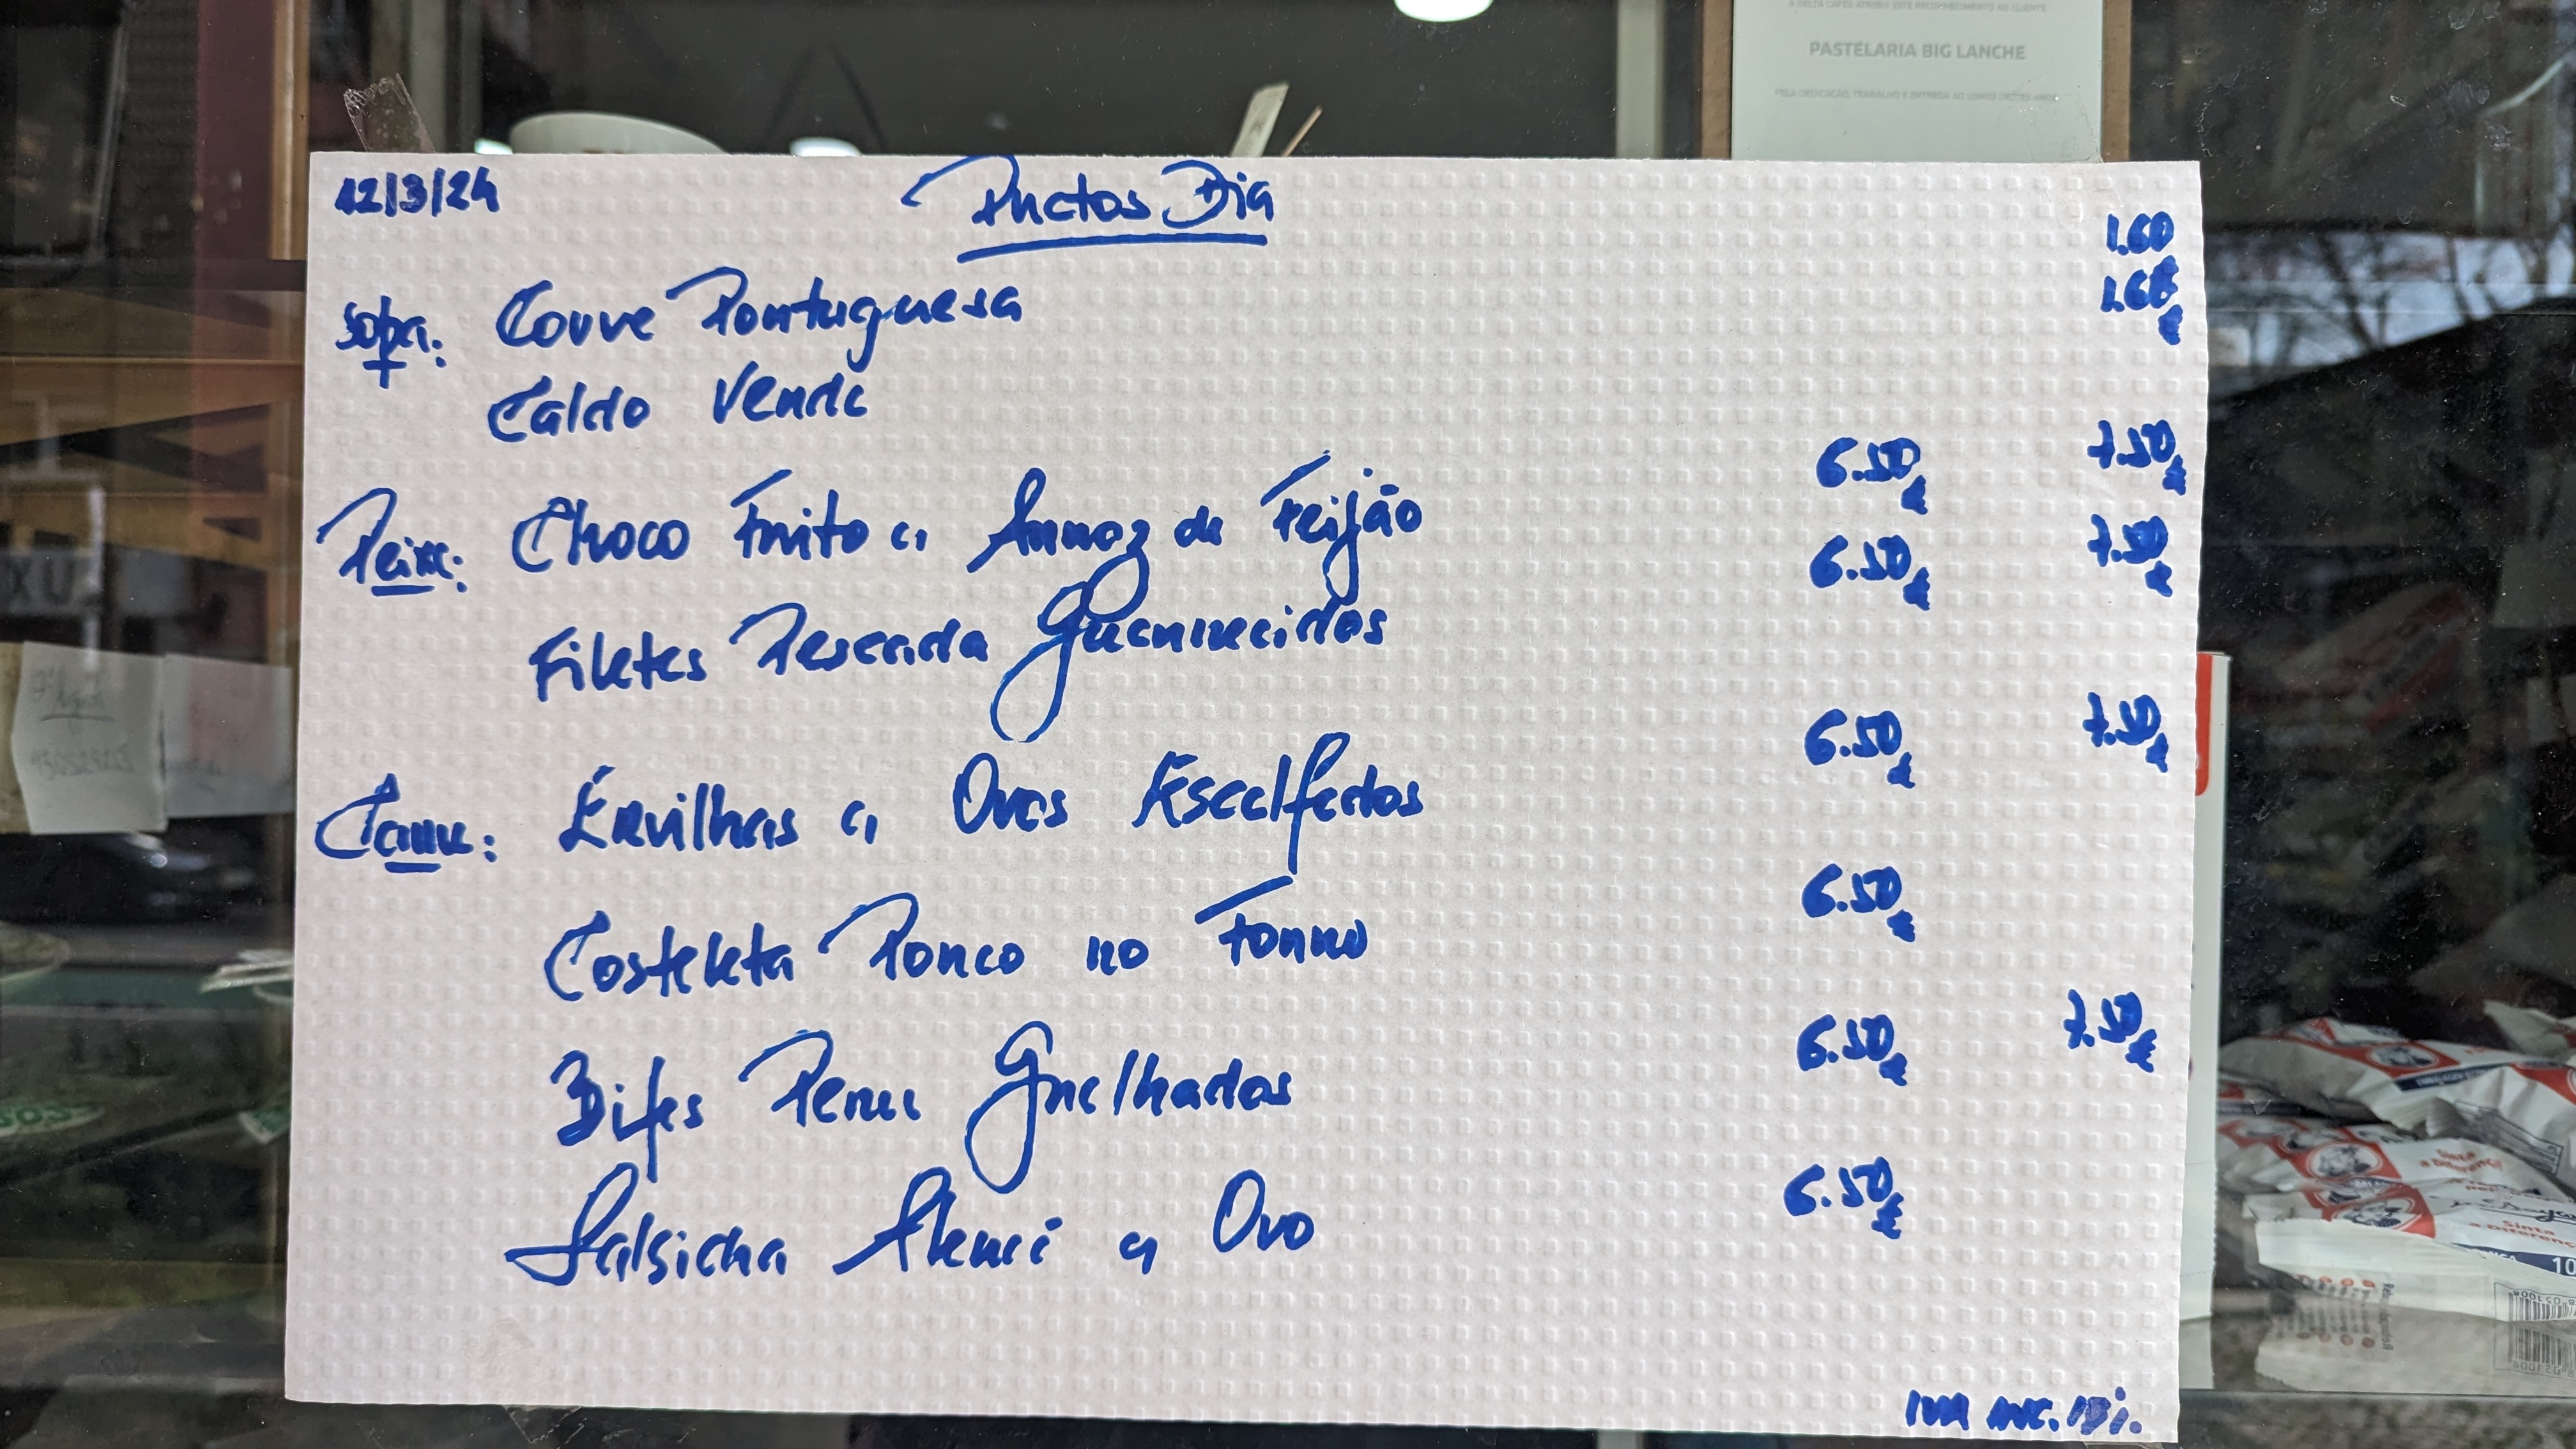 A DELTA CAFÉS ATRIBUI ESTE RECONHECIMENTO AO CLIENTE
PASTELARIA BIG LANCHE
PELA DEDICAÇÃO, TRABALHO E ENTREGA AO LONGO DESTES ANOS
12/3/24 Pratos Dia
1.60
Sopa: Couve Portuguesa 1.60€
Caldo Verde
Peixe: Choco Frito c/ Arroz de Feijão 6.50€ 7.50€
Filetes Pescada Guarnecidos 6.50€ 7.50€
Carne: Ervilhas c/ Ovos Escalfados 6.50€ 7.50€
Costeleta Porco no Forno 6.50€
Bifes Peru Grelhados 6.50€ 7.50€
Salsicha Alemã c/ Ovo 6.50€
IVA INC. 13%